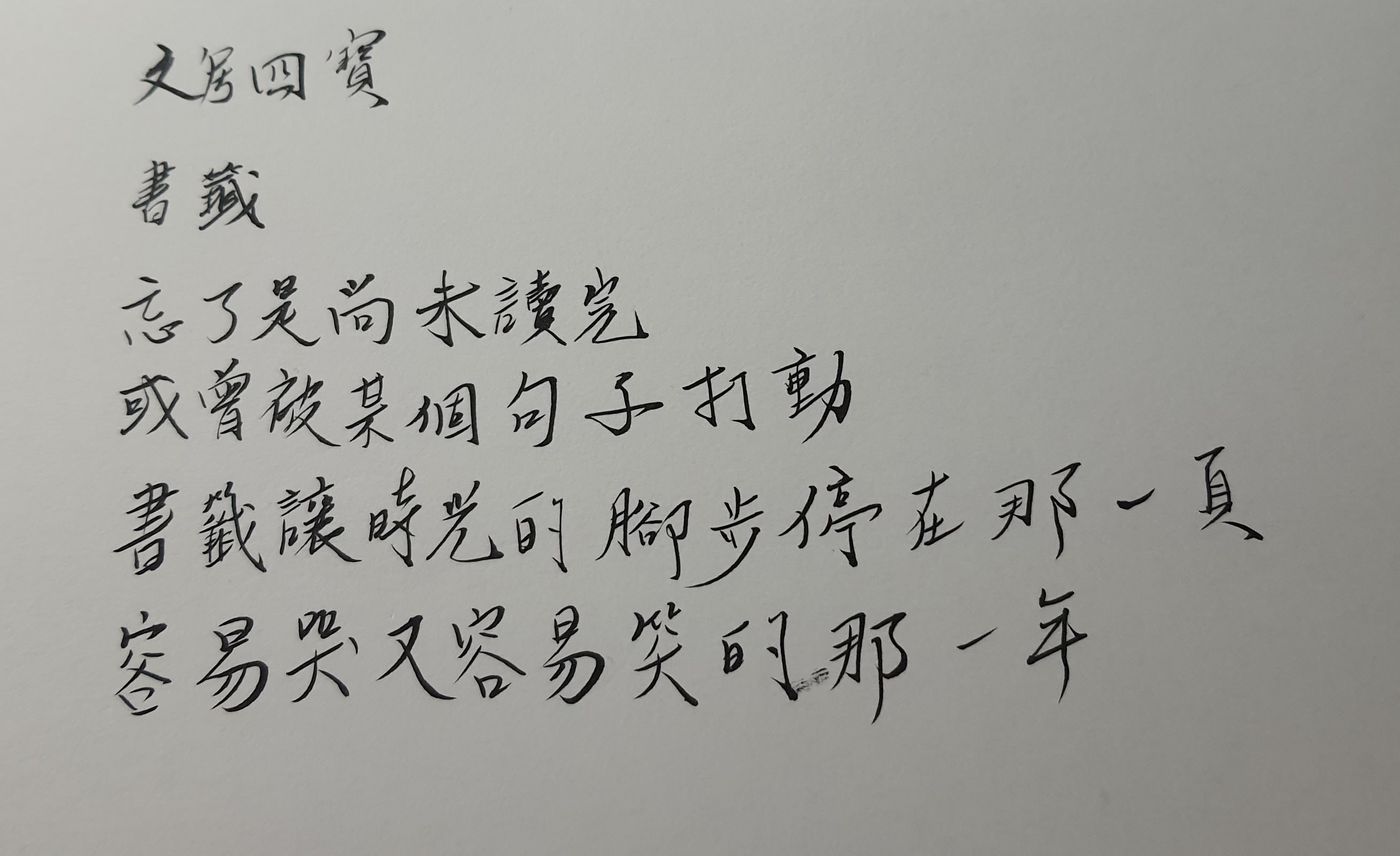 文房四寶
書籤
忘了是尚未讀完
或曾被某個句子打動
書籤讓時光的腳步停在那一頁
容易哭又容易笑的那一年